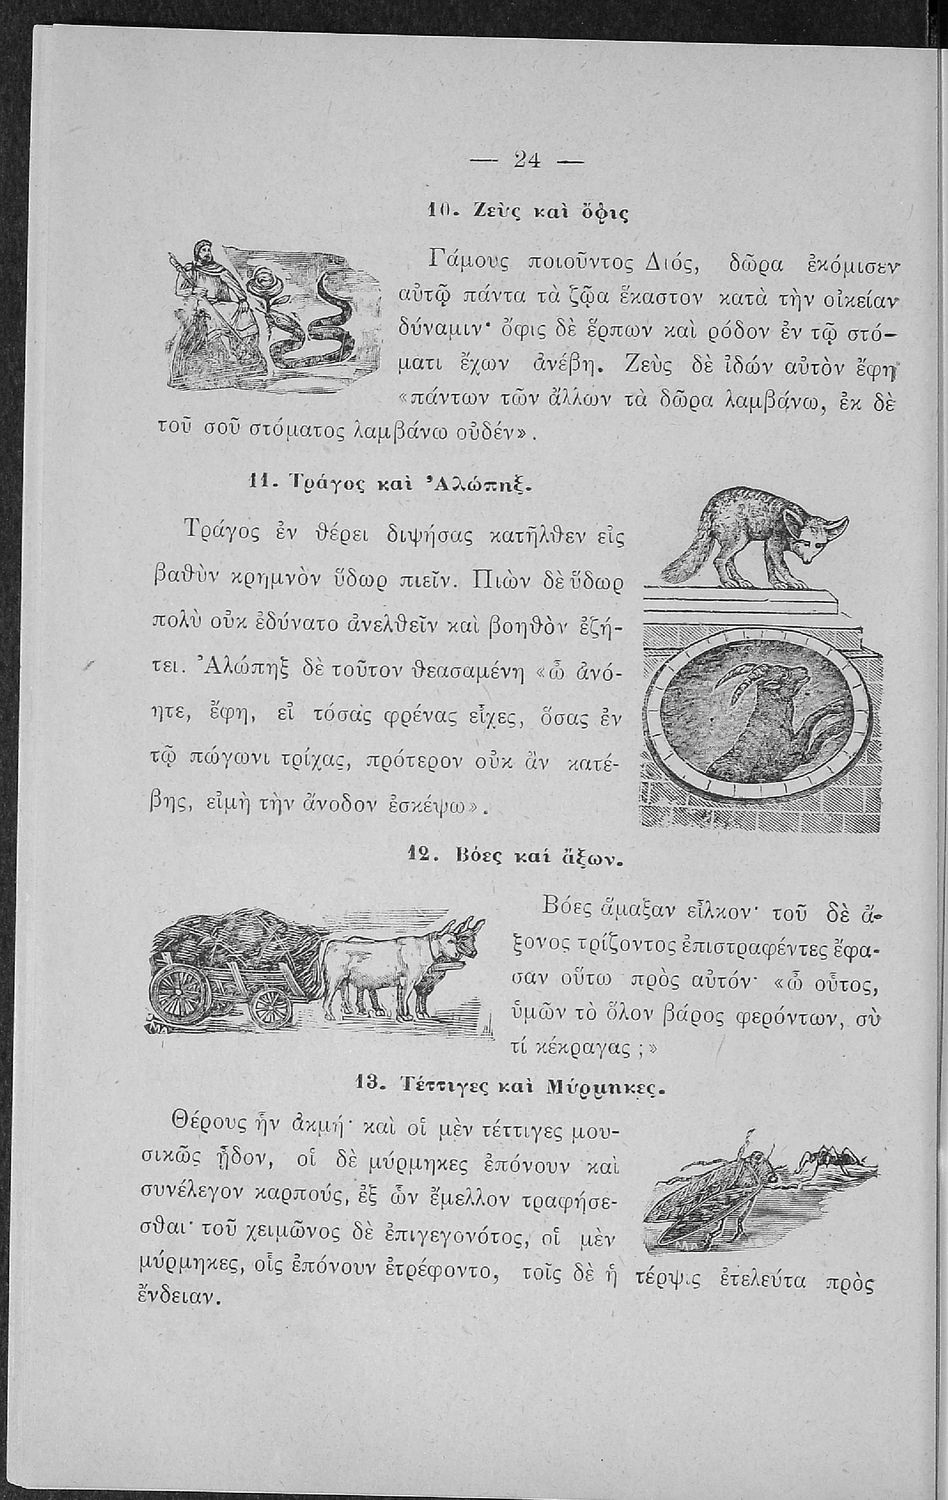 — 24 —
10. Ζεὺς καὶ ὄφις
Γάμους ποιοῦντος Διός, δῶρα ἐκόμισεν
αὐτῷ πάντα τὰ ζῷα ἕκαστον κατὰ τὴν οἰκείαν
δύναμιν· ὄφις δὲ ἕρπων καὶ ρόδον ἐν τῷ στό-
ματι ἔχων ἀνέβη. Ζεὺς δὲ ἰδών αὐτὸν ἔφη
«πάντων τῶν ἄλλων τὰ δῶρα λαμβάνω, ἐκ δὲ
τοῦ σοῦ στόματος λαμβάνω οὐδέν».
11. Τράγος καὶ Ἀλώπηξ.
Τράγος ἐν θέρει διψήσας κατῆλθεν εἰς
βαθὺν κρημνὸν ὕδωρ πιεῖν. Πιὼν δὲ ὕδωρ
πολὺ οὐκ ἐδύνατο ἀνελθεῖν καὶ βοηθὸν ἐζή-
τει. Ἀλώπηξ δὲ τοῦτον θεασαμένη «ὦ ἀνό-
ητε, ἔφη, εἰ τόσας φρένας εἶχες, ὅσας ἐν
τῷ πώγωνι τρίχας, πρότερον οὐκ ἂν κατέ-
βης, εἰμὴ τὴν ἄνοδον ἐσκέψω».
12. Βόες καί ἄξων.
Βόες ἅμαξαν εἷλκον· τοῦ δὲ ἄ-
ξονος τρίζοντος ἐπιστραφέντες ἔφα-
σαν οὕτω πρὸς αὐτόν· «ὦ οὗτος,
ὑμῶν τὸ ὅλον βάρος φερόντων, σὺ
τί κέκραγας ;»
13. Τέττιγες καὶ Μύρμηκες.
Θέρους ἦν ἀκμή· καὶ οἱ μὲν τέττιγες μου-
σικῶς ᾖδον, οἱ δὲ μύρμηκες ἐπόνουν καὶ
συνέλεγον καρπούς, ἐξ ὧν ἔμελλον τραφήσε-
σθαι· τοῦ χειμῶνος δὲ ἐπιγεγονότος, οἱ μὲν
μύρμηκες, οἷς ἐπόνουν ἐτρέφοντο, τοῖς δὲ ἡ τέρψις ἐτελεύτα πρὸς
ἔνδειαν.